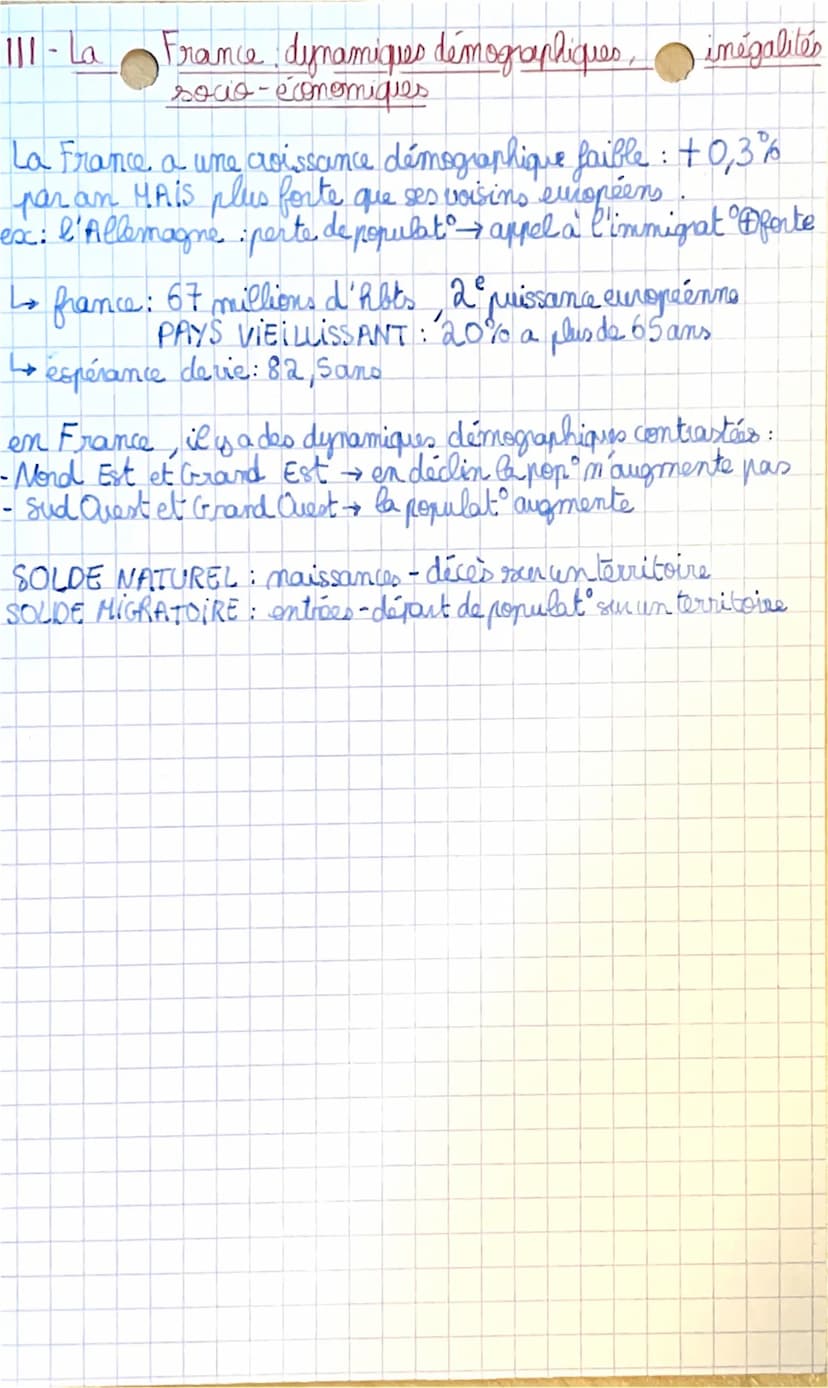 III - La France : dynamiques démographiques, inégalités
socio-économiques
La France a une croissance démographique faible : +0,3%
par an MAIS plus forte que ses voisins européens.
ex: l'Allemagne : perte de populat° → appel à l'immigrat° ⊕ forte
↳ france : 67 millions d'hbts, 2e puissance européenne
PAYS VIEILLISSANT : 20% a plus de 65 ans
↳ espérance de vie : 82,5 ans
en France, il y a des dynamiques démographiques contrastées :
- Nord Est et Grand Est → en déclin la pop° n'augmente pas
- Sud Ouest et Grand Ouest → la populat° augmente
SOLDE NATUREL : naissances - décès sur un territoire
SOLDE MIGRATOIRE : entrées - départ de populat° sur un territoire